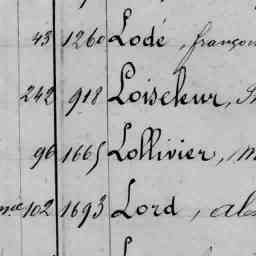 43 1260 Lodé, françoi
242 918 Loiseleur,
96 1665 Lollivier, m
102 1693 Lord, al